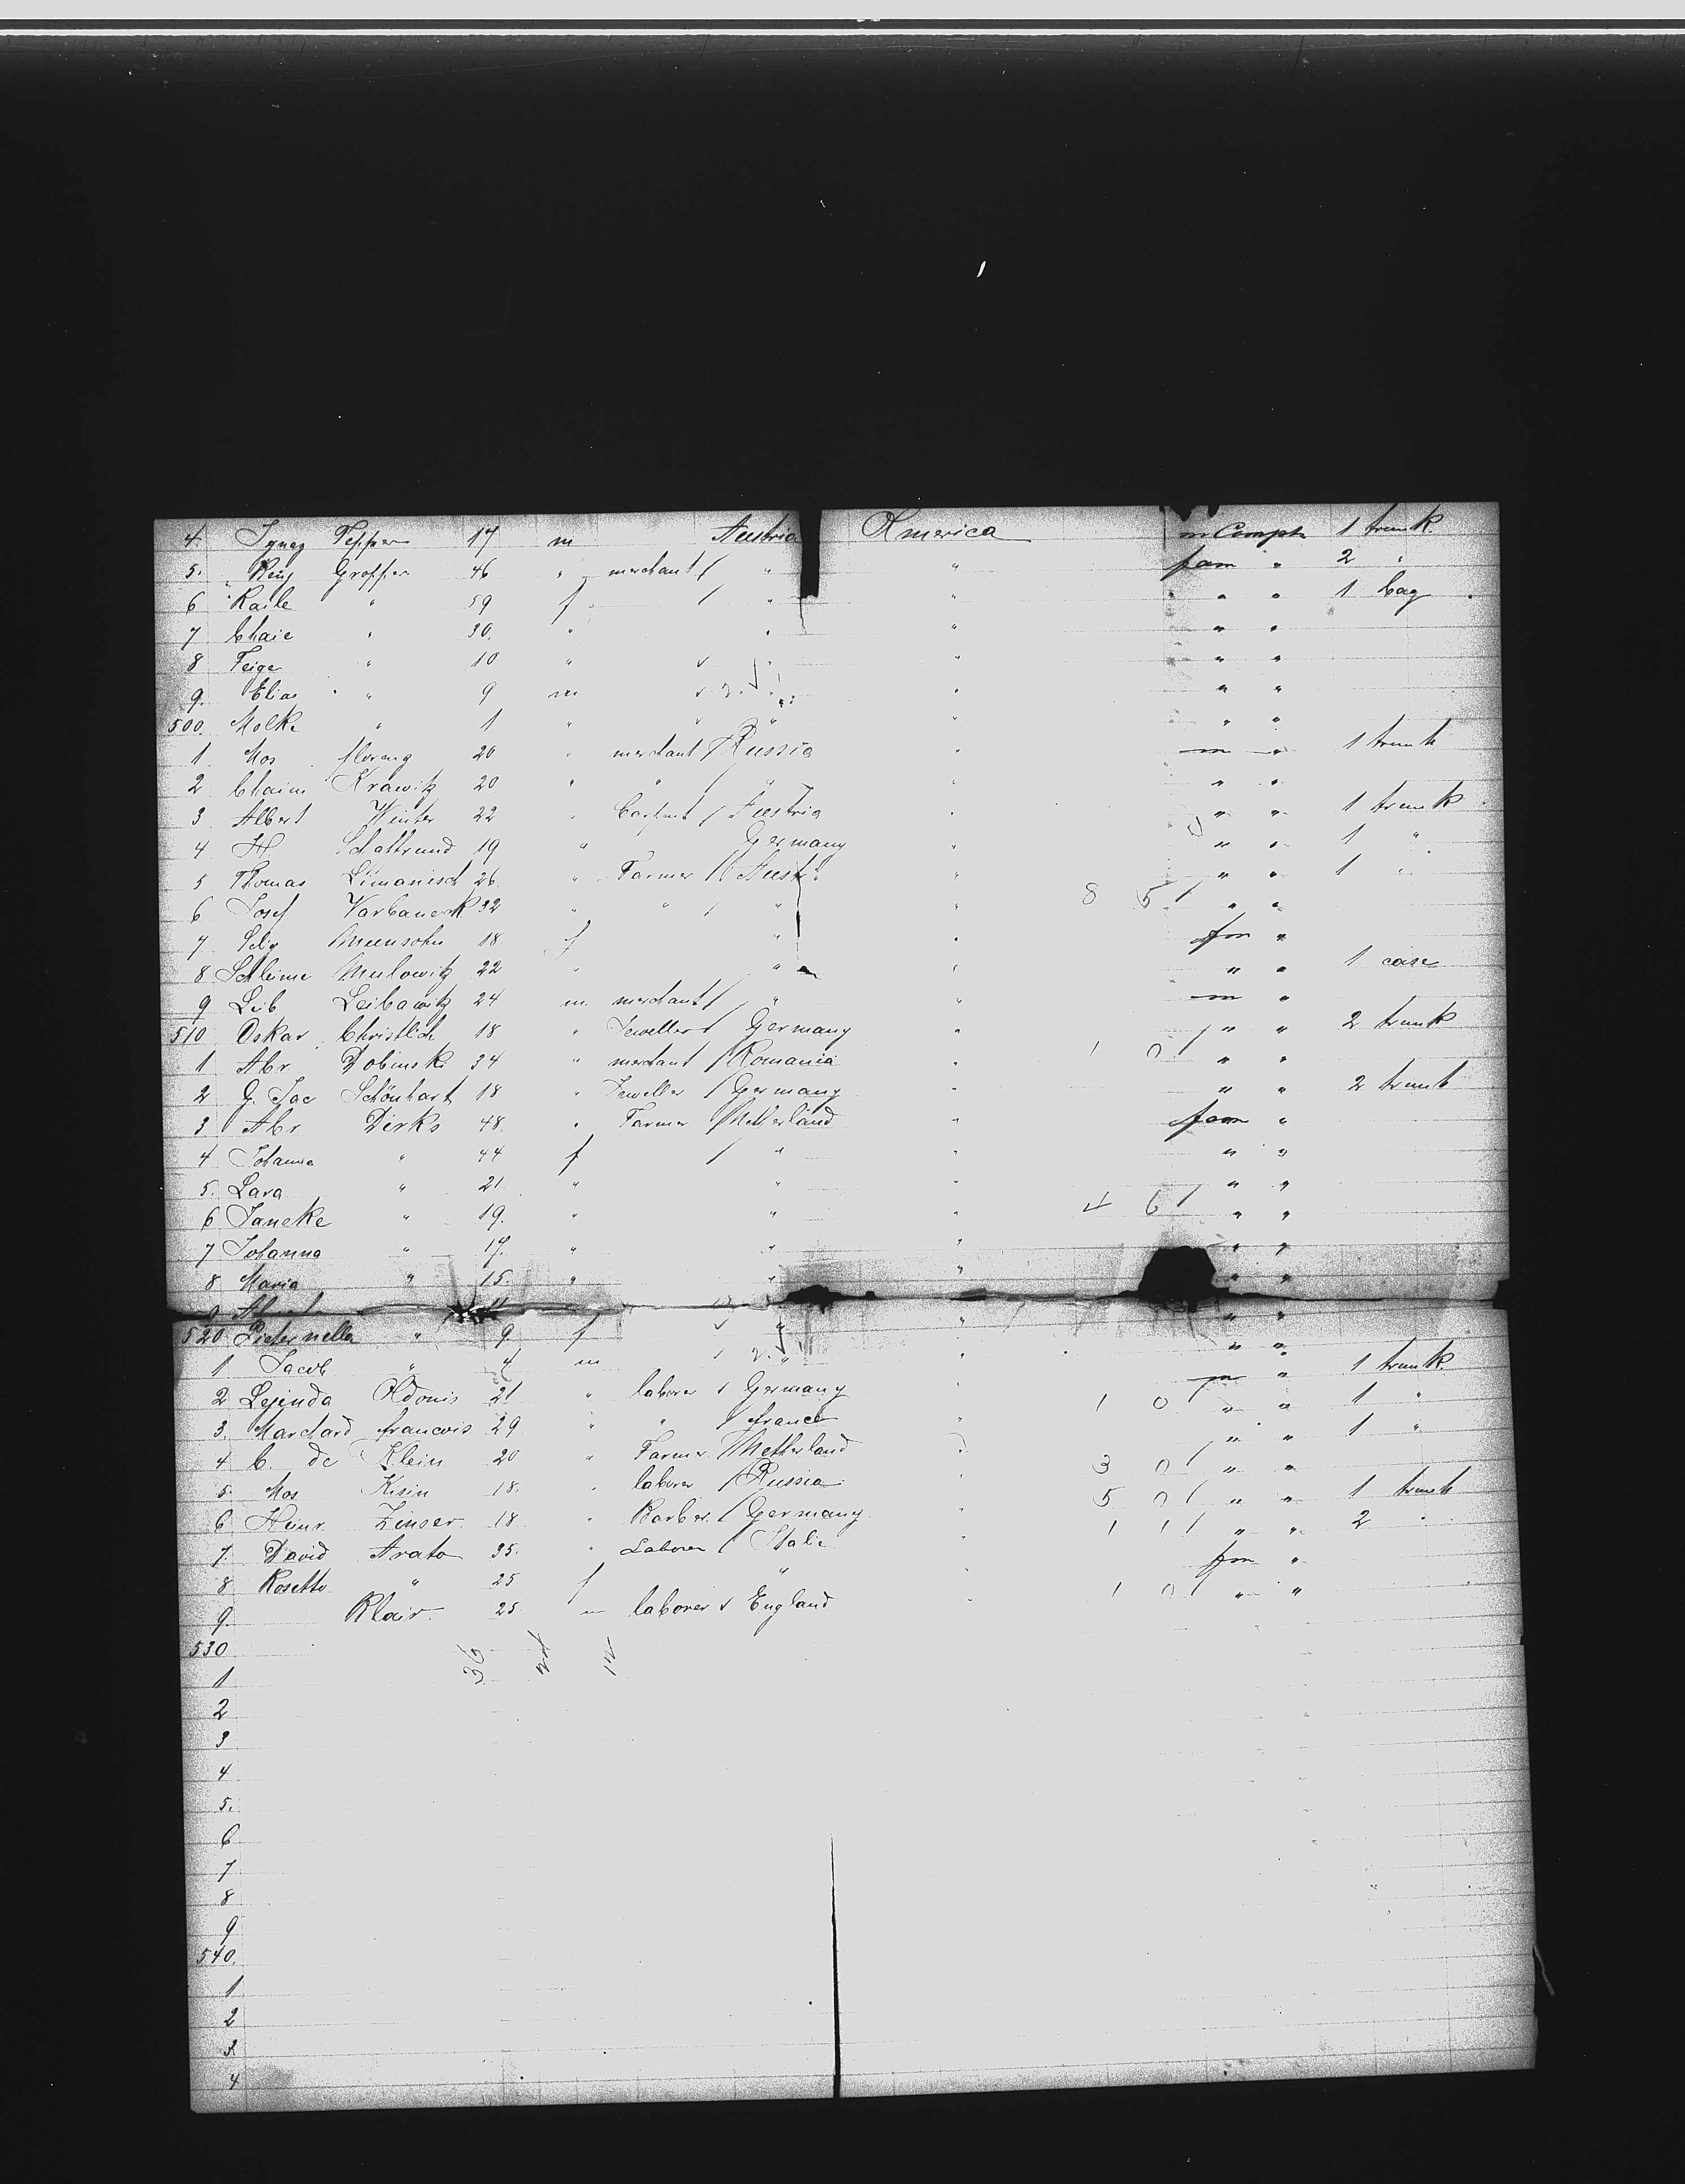 4. Ignaz Pepper 17 m Austria America m Compt 1 trunk
5. Gropper 46 " merchant " " fam " 2 "
6 Raile " 59 f " " " " 1 bag
7 Chaie " 30. " " " " "
8 Feige " 10 " " " " "
9. Elias " 9 m " " " "
500. Molke " 1 " " " " " "
1 Mos 20 " merchant Russia " m " 1 trunk
2 Chaim Krawitz 20 " " " " " "
3 Albert Winter 22 " Austria " " " 1 trunk
4 H 19 " Germany " " " 1 "
5 Thomas Limanisch 26. " Farmer " " " 1 "
6 Josef Varbaneck 32 " " " " 8 5 " "
7 18 f " " "
8 Schleime Mulowitz 22 " " " " " 1 case
9 Leib Leibawitz 24 m merchant " " m "
510 Oskar Christlich 18 " Jeweller Germany " " " 2 trunk
1 Abr Dobinski 34 " merchant Romania " 1 0 " "
2 G. Jac Schönhart 18 " Jeweller Germany " " " 2 trunk
3 Abr. Dirks 48. " Farmer Netherland " fam "
4 Johanna " 44 f " " " "
5. Lara " 21 " " " " "
6 Janeke " 19. " " " 4 6 " "
7 Johanna " 17. " " " " "
8 Maria " 15. " " " " "
9 " "
520 Pieternella " 9. f " " " "
1 Jacob " 4 m " " " " 1 trunk
2 Adonis 21 " laborer Germany " 1 0 m " 1 "
3. Marchard francois 29 " " france " " " 1 "
4 C. de Klein 20 " Farmer Netherland " 3 0 " "
5. Mos Kisin 18. " laborer Russia " 5 0 " " 1 trunk
6 Heinr. Zinser 18 " Barber Germany " 1 1 " " 2 "
7. David Arato 35. " Laborer Italie " "
8 Rosetto " 25 f " " 1 0 " "
9. Klair 25 m laborer England "
530 36
1
2
3
4
5.
6
7
8
9
540.
1
2
3
4